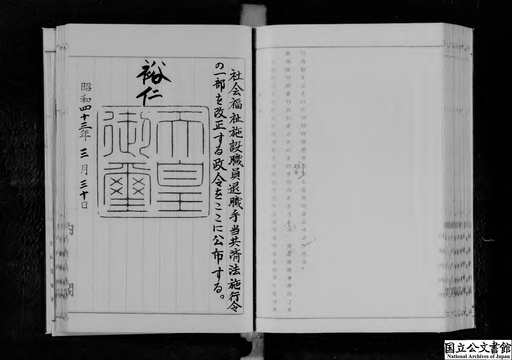 社会福祉施設職員退職手当共済法施行令
の一部を改正する政令をここに公布する。
裕仁
天皇
御璽
昭和四十三年三月三十日
内閣
国立公文書館
National Archives of Japan